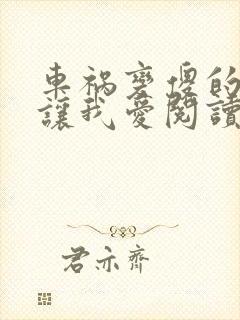 東禍壑傻的
讓我愛閱讀
君亦齊